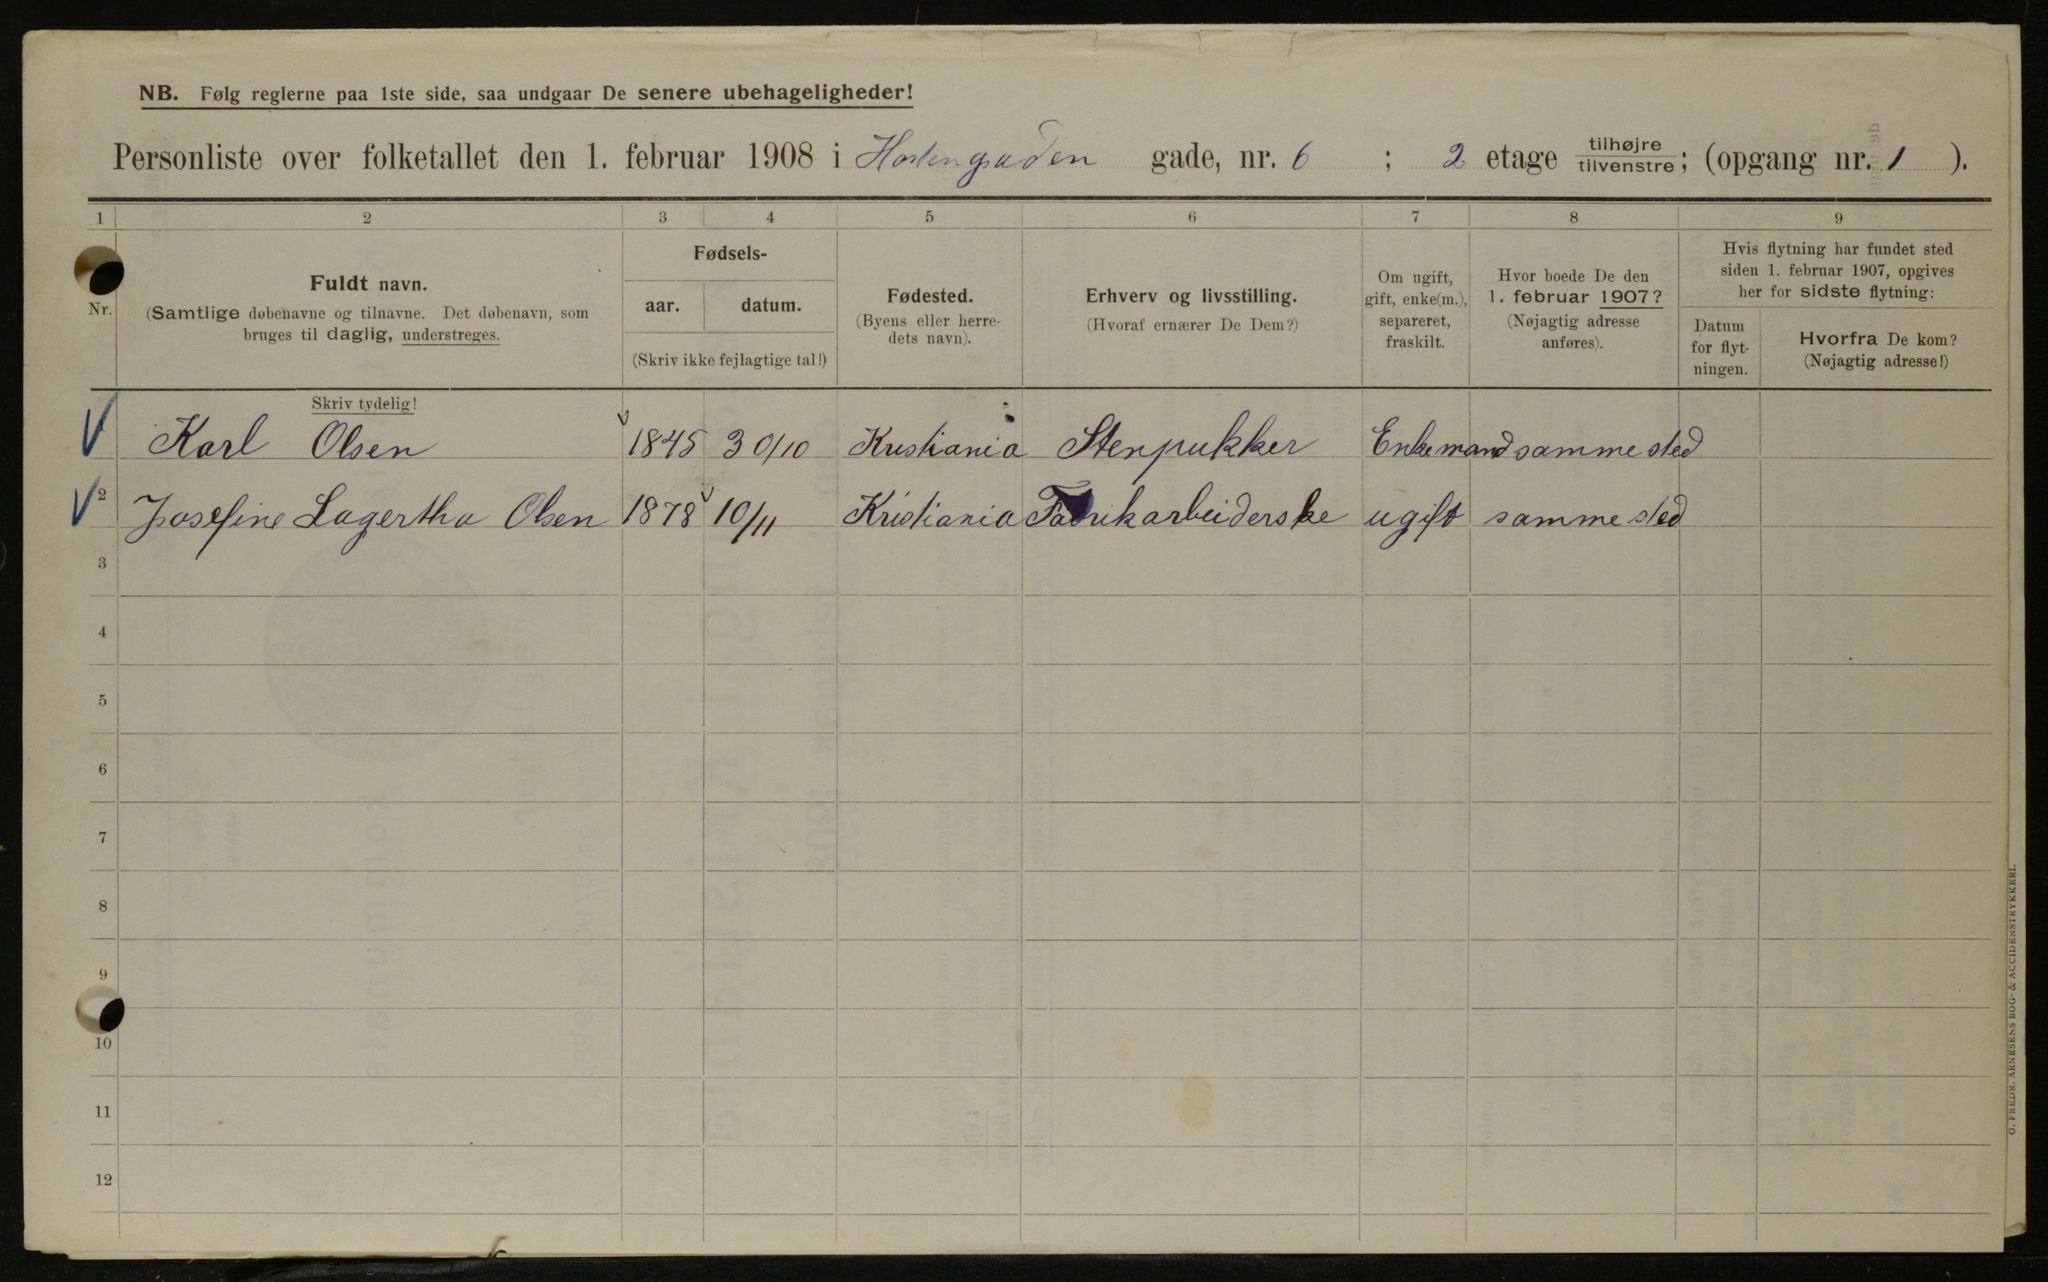 NB. Følg reglerne paa 1ste side, saa undgaar De senere ubehageligheder!
Personliste over folketallet den 1. februar 1908 i Hortengaden gade, nr. 6 ; 2 etage tilhøjre tilvenstre; (opgang nr. 1 ).
1 2 3 4 5 6 7 8 9
Nr.
Fuldt navn.
(Samtlige døbenavne og tilnavne. Det døbenavn, som
bruges til daglig, understreges.
Fødsels-
aar. datum.
(Skriv ikke fejlagtige tal!)
Fødested.
(Byens eller herre-
dets navn).
Erhverv og livsstilling.
(Hvoraf ernærer De Dem?)
Om ugift,
gift, enke(m.),
separeret,
fraskilt.
Hvor boede De den
1. februar 1907?
(Nøjagtig adresse
anføres).
Hvis flytning har fundet sted
siden 1. februar 1907, opgives
her for sidste flytning:
Datum
for flyt-
ningen.
Hvorfra De kom?
(Nøjagtig adresse!)
Skriv tydelig!
Karl Olsen 1845 30/10 Kristiania Stenpukker Enkemand samme sted
2 Josefine Lagertha Olsen 1878 10/11 Kristiania Fabrikarbeiderske ugift samme sted
3
4
5
6
7
8
9
10
11
12
O. FREDR. ARNESENS BOG- & ACCIDENSTRYKKERI.